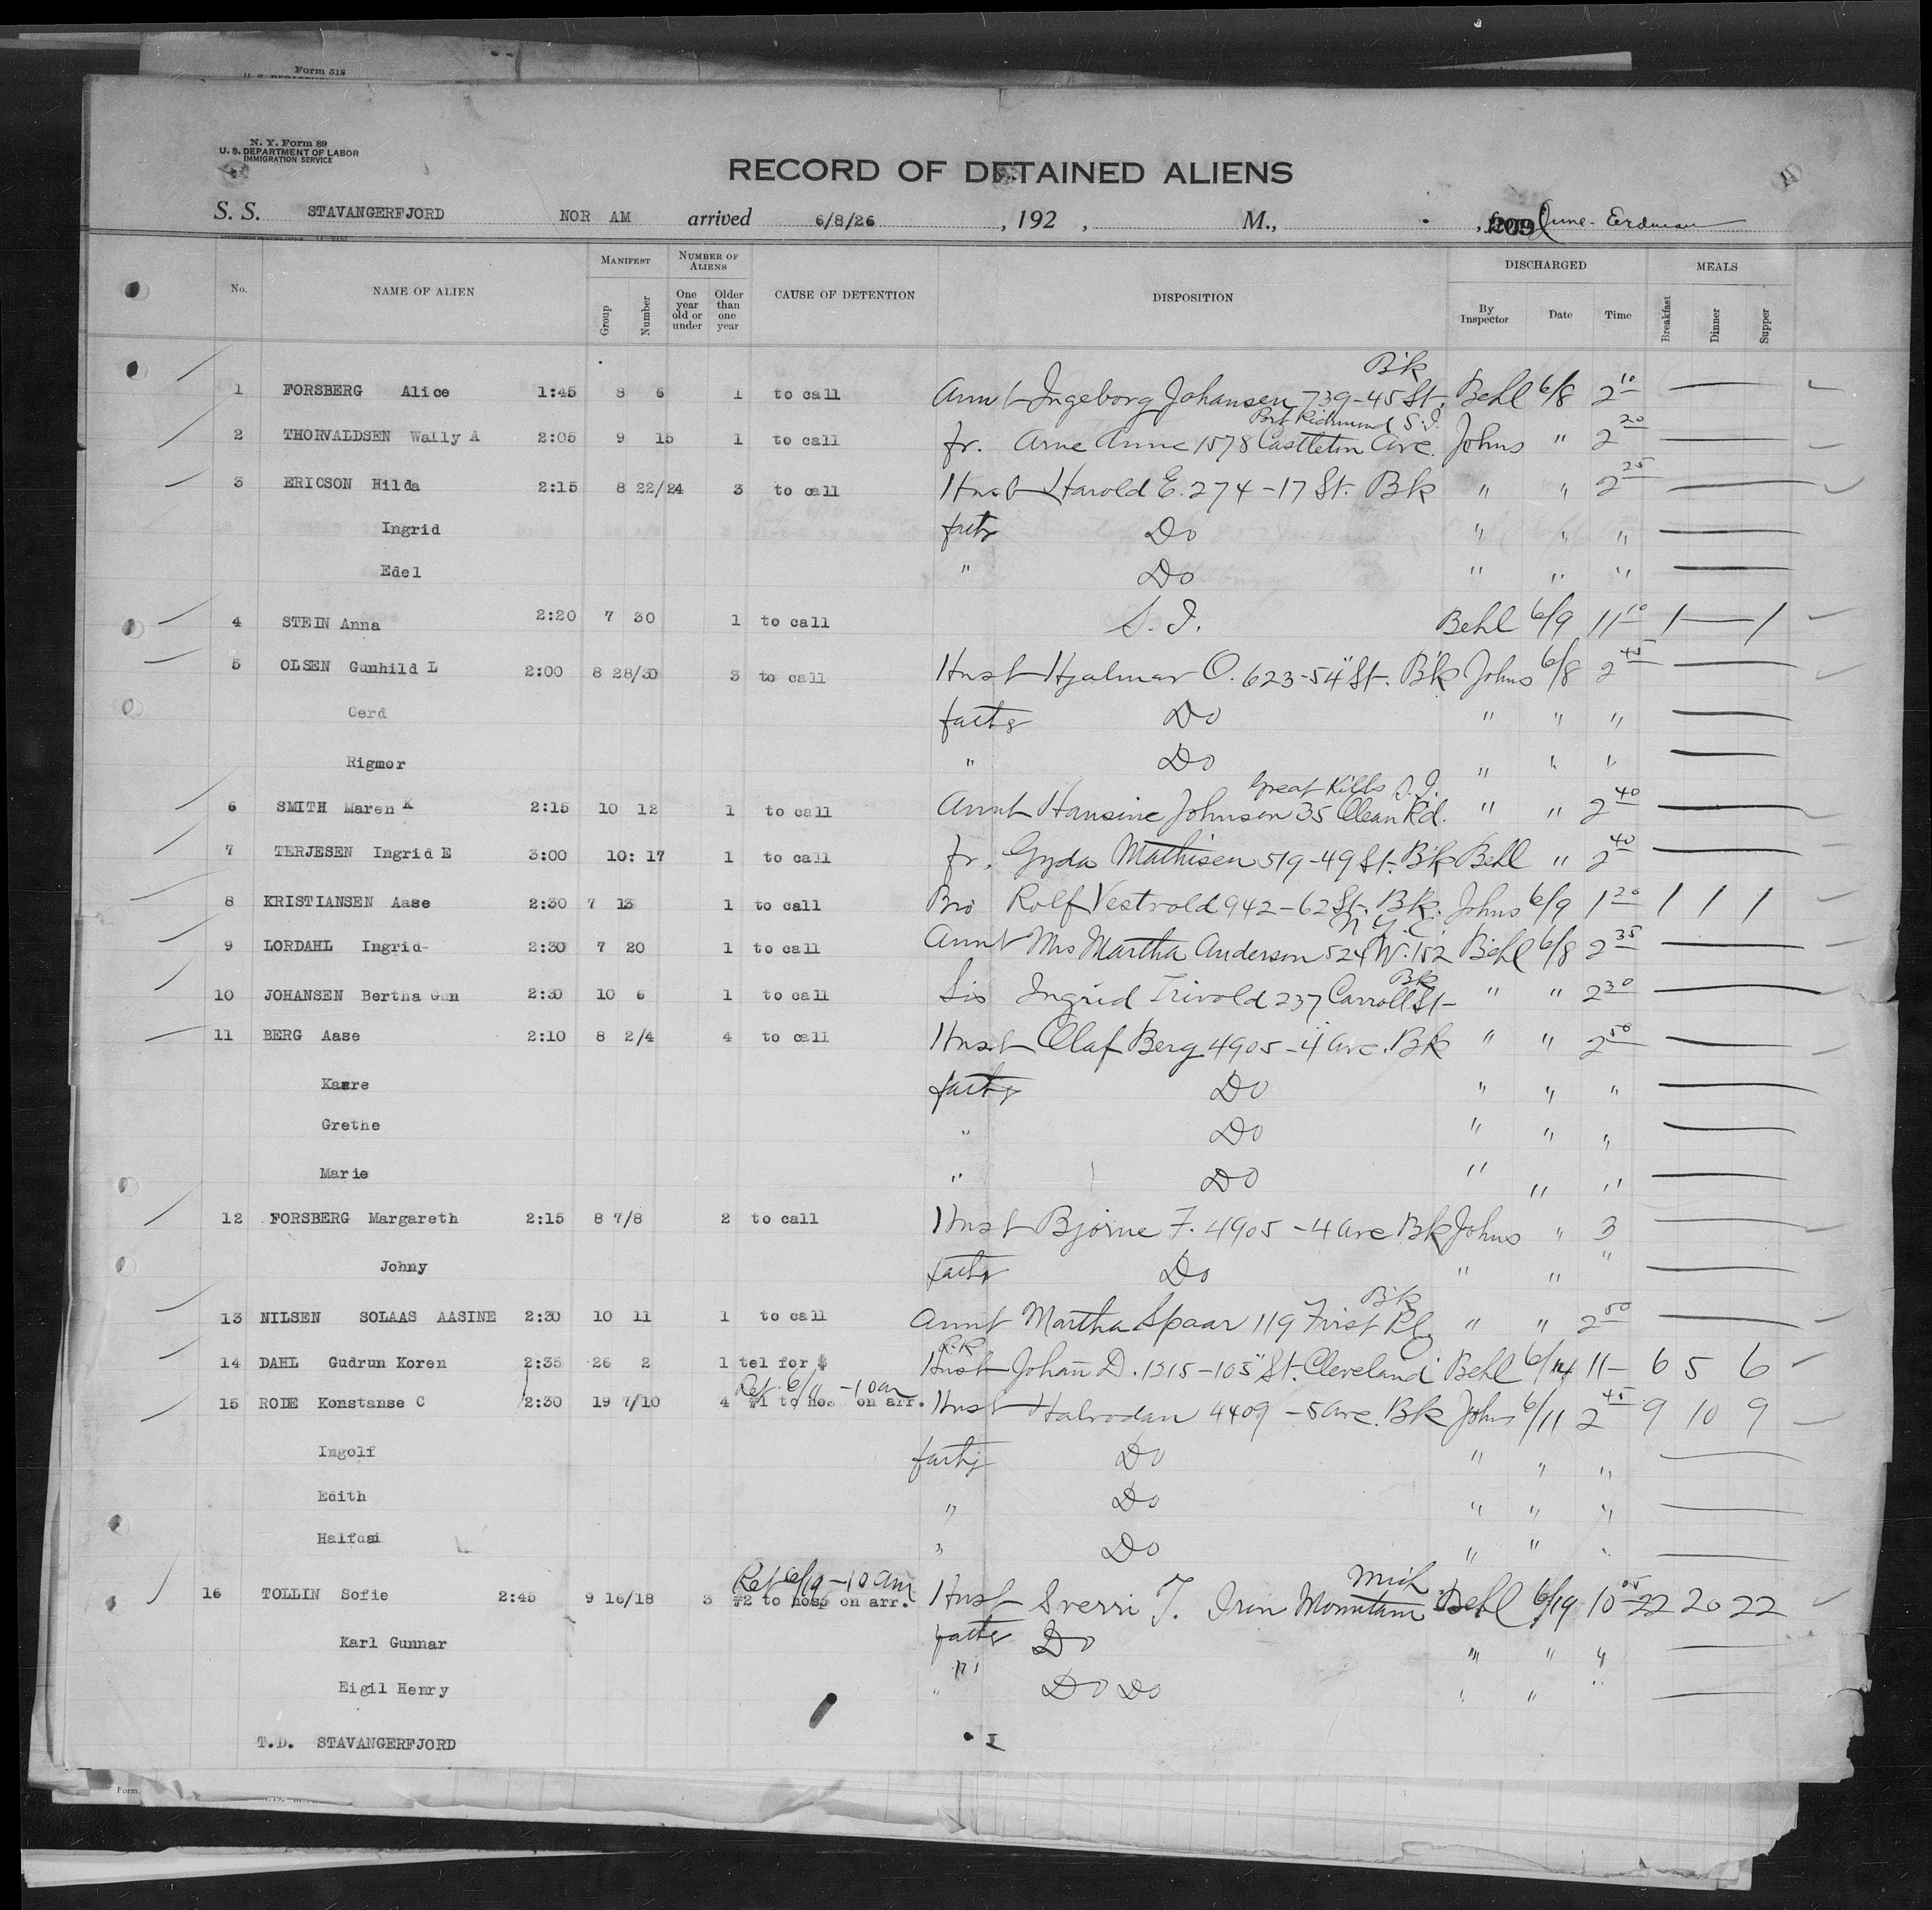 Form 518
N. Y. Form 89
U. S. DEPARTMENT OF LABOR
IMMIGRATION SERVICE
RECORD OF DETAINED ALIENS
S. S. STAVANGERFJORD NOR AM arrived 6/8/26 , 192 , M., 209 June - Erdman
No. NAME OF ALIEN MANIFEST Group Number NUMBER OF ALIENS One year old or under Older than one year CAUSE OF DETENTION DISPOSITION DISCHARGED By Inspector Date Time MEALS Breakfast Dinner Supper
Bk
1 FORSBERG Alice 1:45 8 6 1 to call Aunt Ingeborg Johansen 739-45 St. Behl 6/8 2 10
Port Richmond S.I.
2 THORVALDSEN Wally A 2:05 9 15 1 to call fr. Arne Anne 1578 Castleton Ave. Johns " 2 20
3 ERICSON Hilda 2:15 8 22/24 3 to call Husb Harold E. 274-17 St. Bk " " 2 25
Ingrid fathr Do " " "
Edel " Do " " "
4 STEIN Anna 2:20 7 30 1 to call S. I. Behl 6/9 11 10 1 — 1
5 OLSEN Gunhild L 2:00 8 28/30 3 to call Husb Hjalmar O. 623-54" St. Bk Johns 6/8 2 45
Gerd father Do " " "
Rigmor " Do " " "
Great Kills S.I.
6 SMITH Maren K 2:15 10 12 1 to call Aunt Hansine Johnson 35 Clean Rd. " " 2 40
7 TERJESEN Ingrid E 3:00 10: 17 1 to call fr. Gyda Mathisen 519-49 St. Bk Behl " 2 40
8 KRISTIANSEN Aase 2:30 7 13 1 to call Bro Rolf Vestvold 942-62 St. Bk. Johns 6/9 1 20 1 1 1
N.Y.C.
9 LORDAHL Ingrid- 2:30 7 20 1 to call Aunt Mrs Martha Anderson 524 W. 152 Behl 6/8 2 35
Bk
10 JOHANSEN Bertha Gun 2:30 10 6 1 to call Sis Ingrid Trivold 237 Carroll St- " " 2 30
11 BERG Aase 2:10 8 2/4 4 to call Husb Olaf Berg 4905-4 Ave. Bk " " 2 50
Kaare father Do " " "
Grethe " Do " " "
Marie " Do " " "
12 FORSBERG Margareth 2:15 8 7/8 2 to call Husb Bjorne F. 4905-4 Ave Bk Johns " 3
Johny father Do " " "
Bk
13 NILSEN SOLAAS AASINE 2:30 10 11 1 to call Aunt Martha Spaar 119 First Pl. " " 2 50
R.R.
14 DAHL Gudrun Koren 2:35 26 2 1 tel for $ Husb Johan D. 1215-105" St. Cleveland Behl 6/14 11- 6 5 6
Ret 6/11 -10am
15 RODE Konstanse C 2:30 19 7/10 4 #1 to hos on arr. Husb Halvodan 4409-5 Ave. Bk Johns 6/11 2 45 9 10 9
Ingolf father Do " " "
Edith " Do " " "
Halfdan " Do " " "
Ret 6/19 -10am Mich
16 TOLLIN Sofie 2:45 9 16/18 3 #2 to hosp on arr. Husb Sverri T. Iron Mountain Behl 6/19 10 05 22 20 22
Karl Gunnar father Do " " "
Eigil Henry " Do Do " " "
T.D. STAVANGERFJORD
Form.